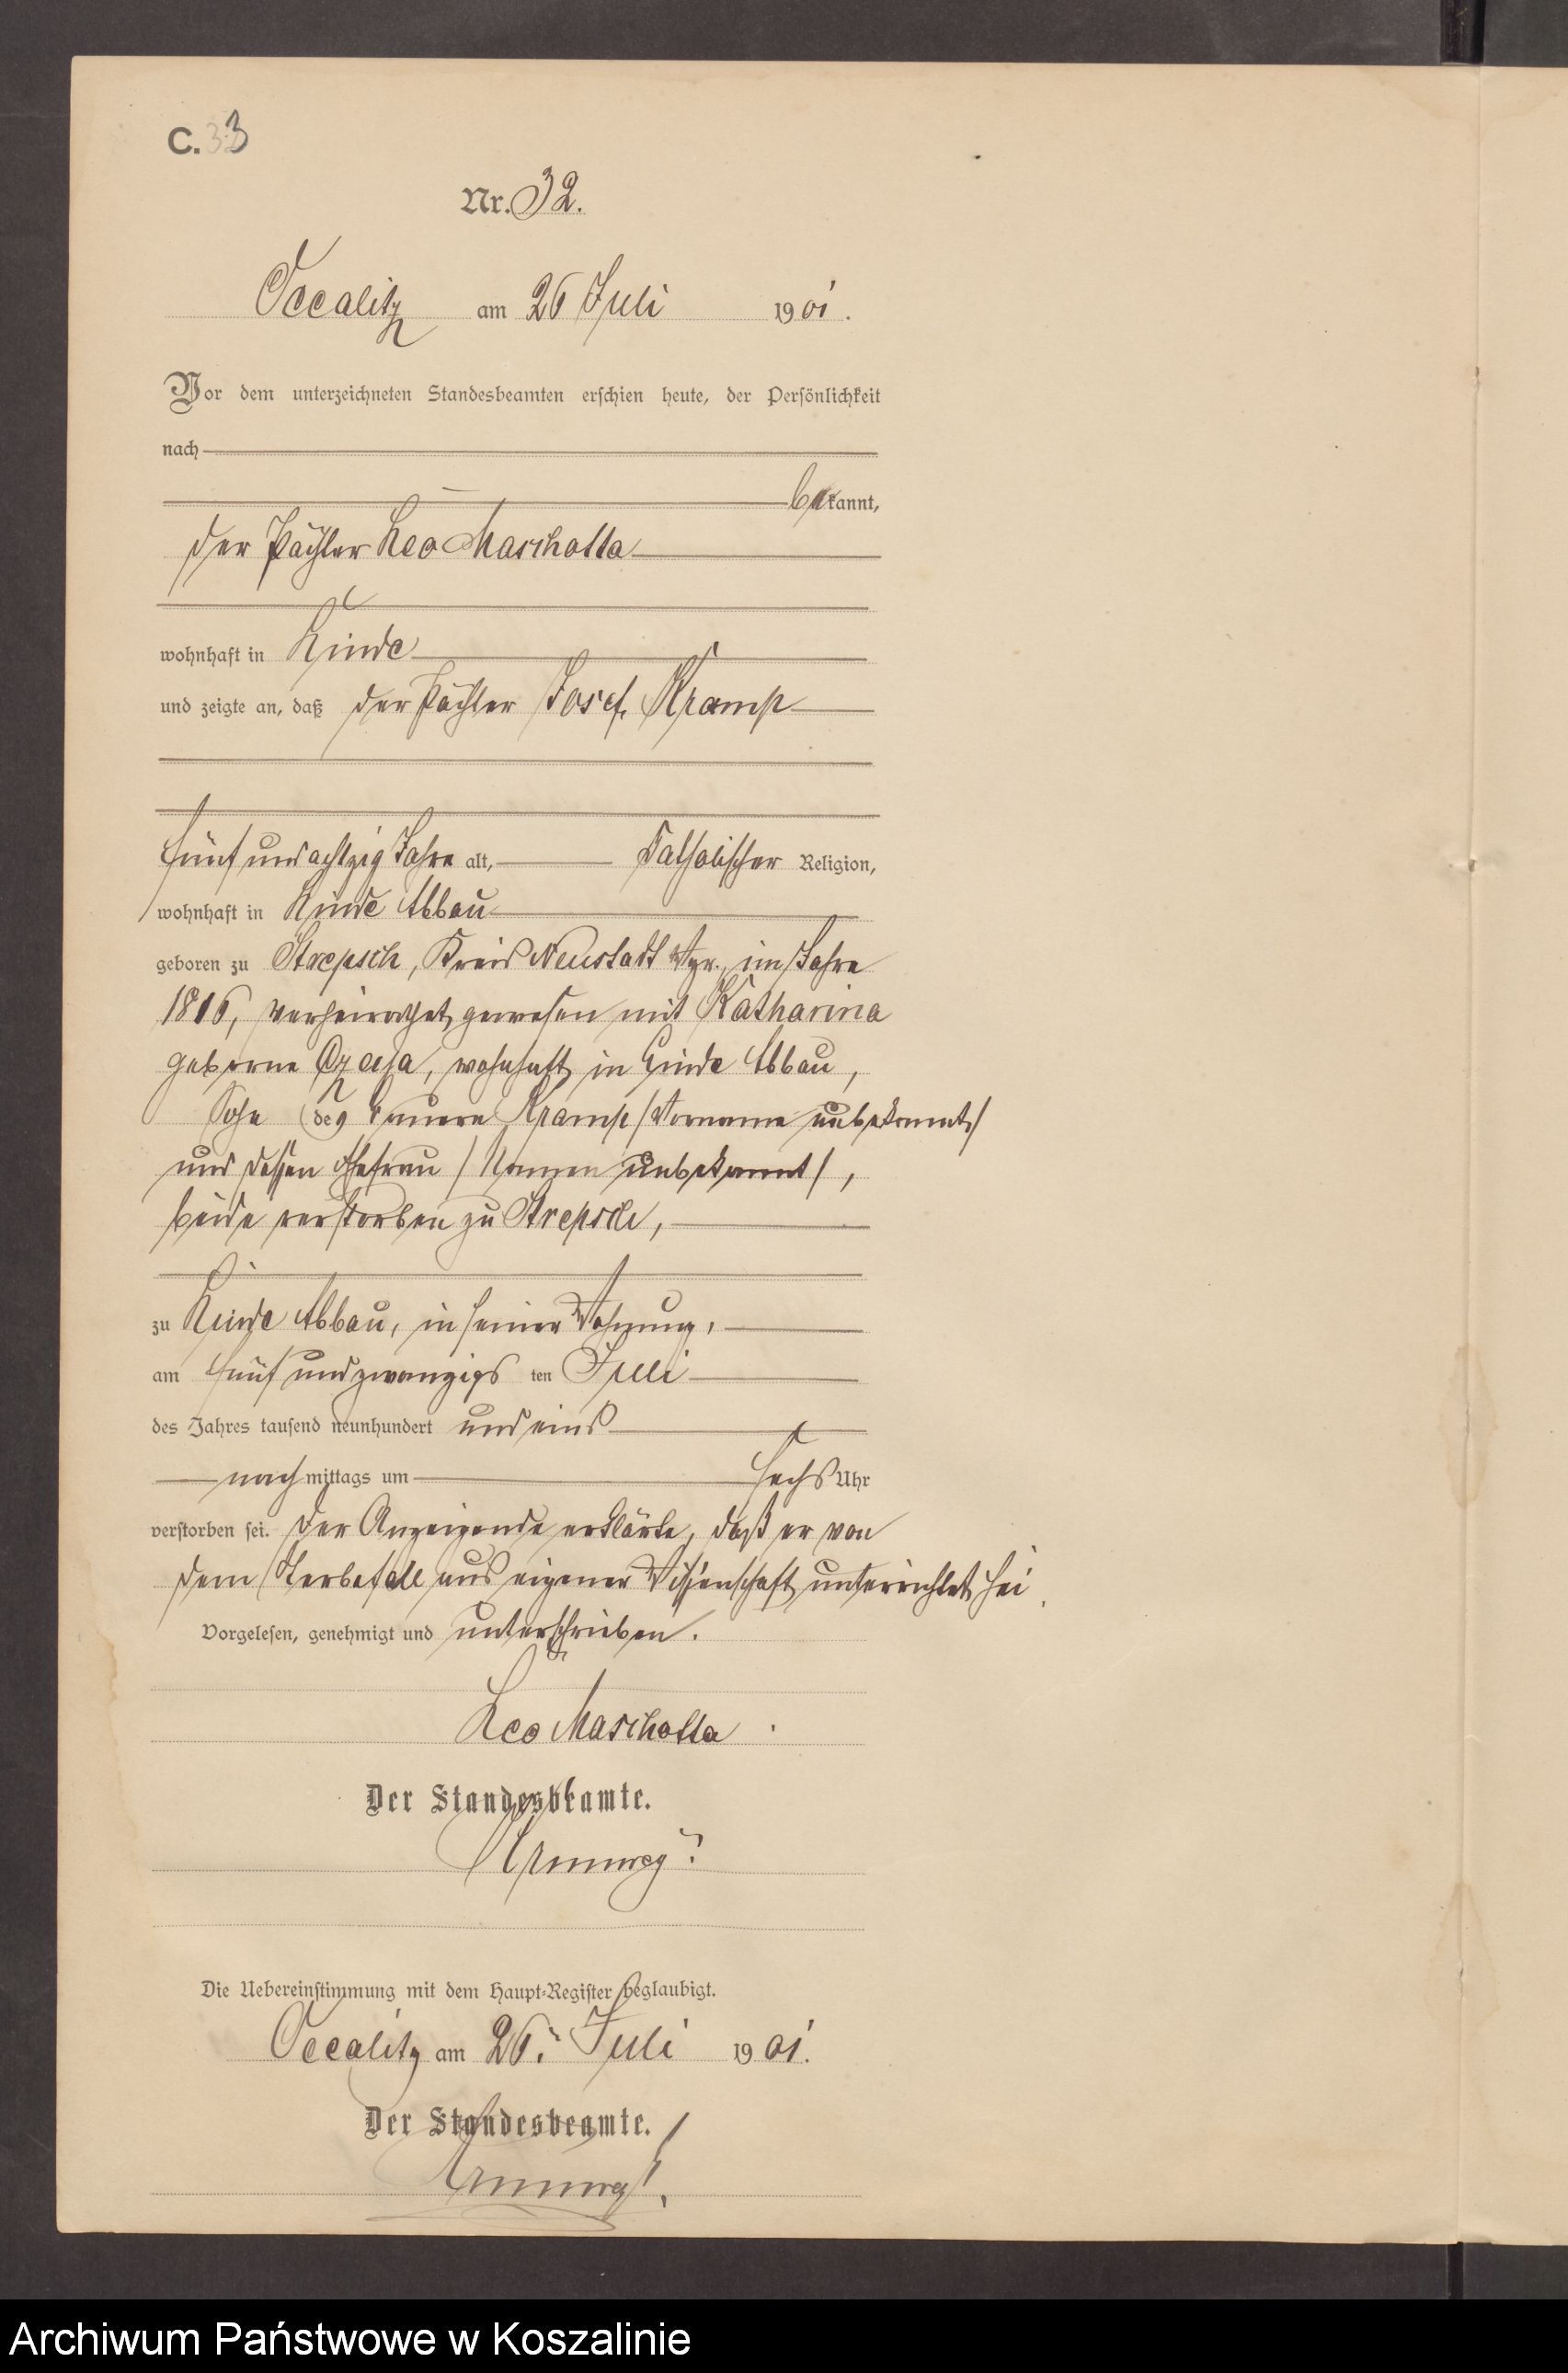 C. 33
Nr. 32.
Occalitz am 26 Juli 1901.
Vor dem unterzeichneten Standesbeamten erschien heute, der Persönlichkeit
nach
bekannt,
der Pächter Leo Maschotta
wohnhaft in Linde
und zeigte an, daß der Pächter Josef Kramp
fünfundachtzig Jahre alt, katholischer Religion,
wohnhaft in Linde Abbau
geboren zu Strepsch, Kreis Neustadt Wpr., im Jahre
1816, verheirathet gewesen mit Katharina
geborne, wohnhaft in Linde Abbau,
Sohn des Bauern Kramp /Vorname unbekannt/
und dessen Ehefrau /Namen unbekannt/,
beide verstorben zu Strepsch,
zu Linde Abbau, in seiner Wohnung,
am fünfundzwanzigsten Juli
des Jahres tausend neunhundert und eins
nachmittags um sechs Uhr
verstorben sei. Der Anzeigende erklärte, daß er von
dem Sterbefall aus eigener Wissenschaft unterrichtet sei.
Vorgelesen, genehmigt und unterschrieben.
Leo Maschotta
Der Standesbeamte.
Die Uebereinstimmung mit dem Haupt-Register beglaubigt.
Occalitz am 26. Juli 1901.
Der Standesbeamte.
Archiwum Państwowe w Koszalinie